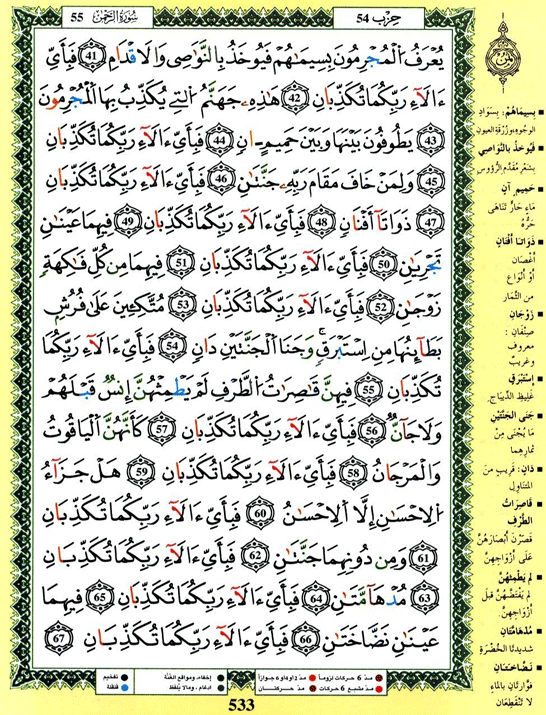 55 سُورَةُ الرَّحْمٰن
حِزْب 54
يُعْرَفُ اُ۬لْمُجْرِمُونَ بِسِيمَٰهُمْ فَيُوخَذُ بِالنَّوَٰصِى وَالَاقْدَامِ 41 فَبِأَيِّ
ءَالَآءِ رَبِّكُمَا تُكَذِّبَانِ 42 هَٰذِهِۦ جَهَنَّمُ اُ۬لتِى يُكَذِّبُ بِهَا اَ۬لْمُجْرِمُونَ
43 يَطُوفُونَ بَيْنَهَا وَبَيْنَ حَمِيمٍ ـ انٍ 44 فَبِأَيِّ ءَالَآءِ رَبِّكُمَا تُكَذِّبَانِ
45 وَلِمَنْ خَافَ مَقَامَ رَبِّهِۦ جَنَّتَٰنِ 46 فَبِأَيِّ ءَالَآءِ رَبِّكُمَا تُكَذِّبَانِ
47 ذَوَاتَآ أَفْنَانٍ 48 فَبِأَيِّ ءَالَآءِ رَبِّكُمَا تُكَذِّبَانِ 49 فِيهِمَا عَيْنَٰنِ
تَجْرِيَٰنِ 50 فَبِأَيِّ ءَالَآءِ رَبِّكُمَا تُكَذِّبَانِ 51 فِيهِمَا مِن كُلِّ فَٰكِهَةٍ
زَوْجَٰنِ 52 فَبِأَيِّ ءَالَآءِ رَبِّكُمَا تُكَذِّبَانِ 53 مُتَّكِـِٕينَ عَلَىٰ فُرُشٍۭ
بَطَآئِنُهَا مِنِ اِسْتَبْرَقٍ وَجَنَا اَ۬لْجَنَّتَيْنِ دَانٍ 54 فَبِأَيِّ ءَالَآءِ رَبِّكُمَا
تُكَذِّبَانِ 55 فِيهِنَّ قَٰصِرَٰتُ اُ۬لطَّرْفِ لَمْ يَطْمِثْهُنَّ إِنسٌ قَبْلَهُمْ
وَلَا جَآنٌّ 56 فَبِأَيِّ ءَالَآءِ رَبِّكُمَا تُكَذِّبَانِ 57 كَأَنَّهُنَّ اَ۬لْيَاقُوتُ
وَالْمَرْجَانُ 58 فَبِأَيِّ ءَالَآءِ رَبِّكُمَا تُكَذِّبَانِ 59 هَلْ جَزَآءُ
اُ۬لِاحْسَٰنِ إِلَّا اَ۬لِاحْسَٰنُ 60 فَبِأَيِّ ءَالَآءِ رَبِّكُمَا تُكَذِّبَانِ
61 وَمِن دُونِهِمَا جَنَّتَٰنِ 62 فَبِأَيِّ ءَالَآءِ رَبِّكُمَا تُكَذِّبَانِ
63 مُدْهَآمَّتَٰنِ 64 فَبِأَيِّ ءَالَآءِ رَبِّكُمَا تُكَذِّبَانِ 65 فِيهِمَا
عَيْنَٰنِ نَضَّاخَتَٰنِ 66 فَبِأَيِّ ءَالَآءِ رَبِّكُمَا تُكَذِّبَانِ 67
بِسِيمَاهُمْ: بِسَوَادِ
الوُجوهِ وزُرْقَةِ العيونِ
فَيُوخَذُ بِالنَّوَاصِي
بِشَعْرِ مُقَدَّمِ الرُّؤوس
حَمِيمٍ آنٍ
مَاءٍ حَارٍّ تَنَاهَى
حَرُّهُ
ذَوَاتَا أَفْنَانٍ
أَغْصَانٍ
أَوْ أَنْوَاعٍ
مِن الثِّمَارِ
زَوْجَانِ
صِنْفَانِ:
معروف
وغريبٌ
إِسْتَبْرَقٍ
غَلِيظِ الدِّيبَاجِ
جَنَى الجَنَّتَيْنِ
مَا يُجْنَى مِنْ
ثِمارِهِما
دَانٍ: قَرِيبٌ مِنَ
المُتَنَاوِلِ
قَاصِرَاتُ
الطَّرْفِ
قَصَرْنَ أَبْصَارَهُنَّ
عَلَى أَزْوَاجِهِنَّ
لَمْ يَطْمِثْهُنَّ
لَمْ يَفْتَضَّهُنَّ قَبْلَ
أَزْوَاجِهِنَّ
مُدْهَامَّتَانِ
شَدِيدَتَا الخُضْرَةِ
نَضَّاخَتَانِ
فَوَّارَتَانِ بِالمَاءِ
لا تَنْقَطِعَانِ
مدّ 6 حركات لزوماً مدّ 2 أو 4 أو 6 جوازاً
مدّ مشبع 6 حركات مدّ حركتـان
إخفاء، ومواقع الغُنَّة
إدغام، وما لا يُلفظ
تفخيم
قلقلة
533